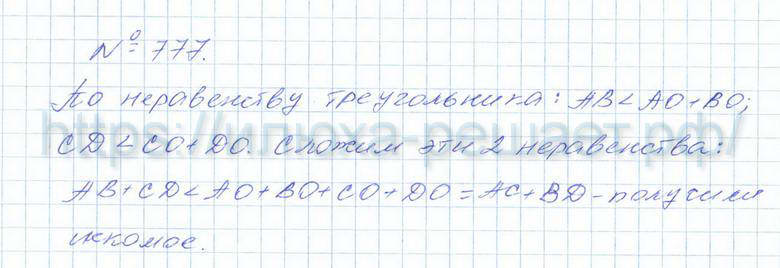 № 777.
По неравенству треугольника: AB < AO + BO;
CD < CO + DO. Сложим эти 2 неравенства:
AB + CD < AO + BO + CO + DO = AC + BD - получили
искомое.
https://шпюха-решает.рф/